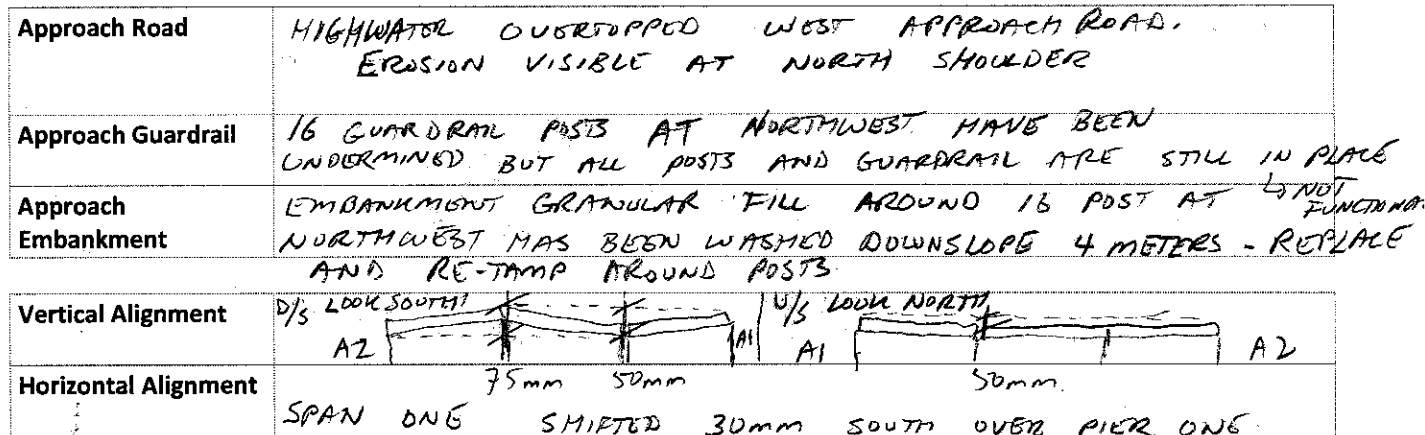 Approach Road
HIGHWATER OVERTOPPED WEST APPROACH ROAD.
EROSION VISIBLE AT NORTH SHOULDER
Approach Guardrail
16 GUARDRAIL POSTS AT NORTHWEST HAVE BEEN
UNDERMINED BUT ALL POSTS AND GUARDRAIL ARE STILL IN PLACE
↳ NOT
FUNCTIONAL.
Approach
Embankment
EMBANKMENT GRANULAR FILL AROUND 16 POST AT
NORTHWEST HAS BEEN WASHED DOWNSLOPE 4 METERS - REPLACE
AND RE-TAMP AROUND POSTS
Vertical Alignment
D/S LOOK SOUTH
A2 A1
75mm 50mm
U/S LOOK NORTH
A1 A2
50mm.
Horizontal Alignment
SPAN ONE SHIFTED 30mm SOUTH OVER PIER ONE